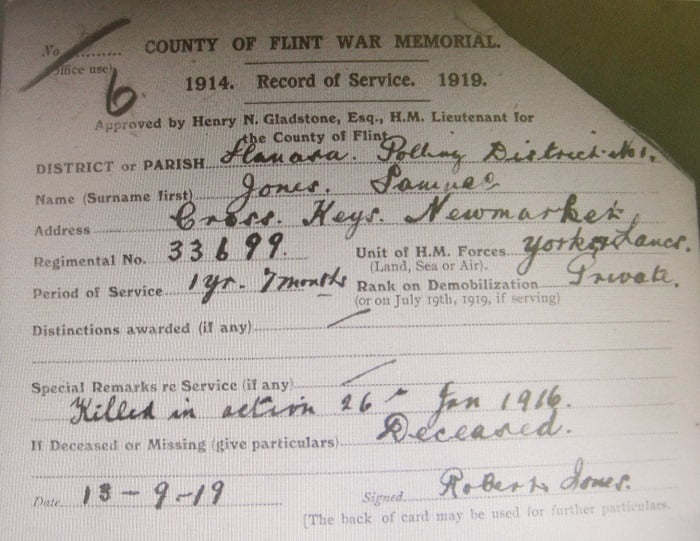 No
Office use)
6.
COUNTY OF FLINT WAR MEMORIAL.
1914. Record of Service. 1919.
Approved by Henry N. Gladstone, Esq., H.M. Lieutenant for
the County of Flint.
DISTRICT or PARISH Llanasa. Polling District No 1.
Name (Surname first) Jones. Samuel
Address Cross. Keys. Newmarket
Regimental No. 33699. Unit of H.M. Forces York & Lancs.
(Land, Sea or Air).
Period of Service 1 yr. 7 months Rank on Demobilization Private.
(or on July 19th, 1919, if serving)
Distinctions awarded (if any)
Special Remarks re Service (if any)
Killed in action 26 Jan 1916.
If Deceased or Missing (give particulars) Deceased.
Date 13-9-19 Signed Robert Jones.
[The back of card may be used for further particulars.